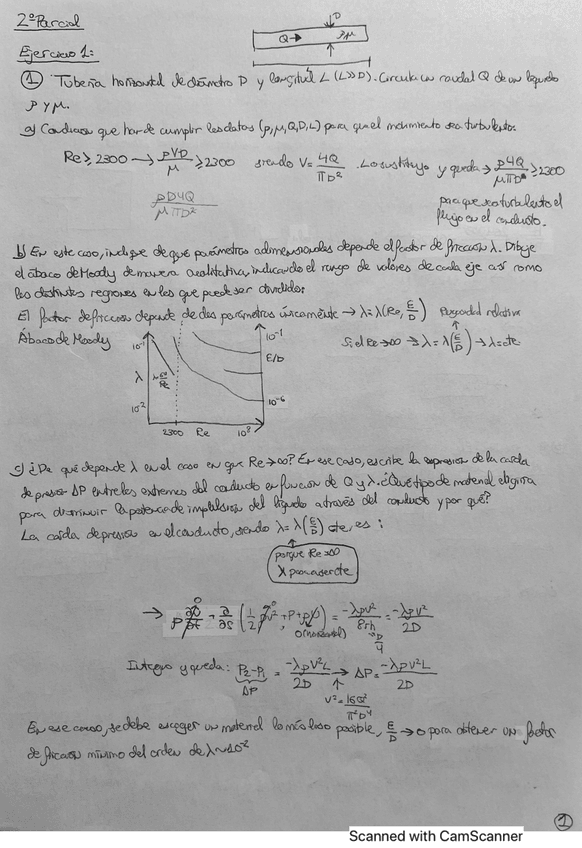 2º Parcial
Ejercicio 1:
D
Q → ρ,μ
L
① Tubería horizontal de diámetro D y longitud L (L>>D). Circula un caudal Q de un líquido
ρ y μ.
a) Condición que han de cumplir los datos (ρ,μ,Q,D,L) para que el movimiento sea turbulento.
Re ≥ 2300 → ρVD/μ ≥ 2300 siendo V = 4Q/πD² . Lo sustituyo y queda → ρ4Q/μπD ≥ 2300
ρD4Q/μπD²
para que sea turbulento el
flujo en el conducto.
b) En este caso, indique de qué parámetros adimensionales depende el factor de fricción λ. Dibuje
el ábaco de Moody de manera cualitativa, indicando el rango de valores de cada eje así como
las distintas regiones en las que puede ser dividido:
El factor de fricción depende de dos parámetros únicamente → λ=λ(Re, E/D) Rugosidad relativa
Ábaco de Moody
Si el Re→∞ ⇒ λ = λ(E/D) → λ=cte
10⁻¹
λ
10⁻²
10⁻¹
E/D
10⁻⁶
2300 Re 10⁸
c) ¿De qué depende λ en el caso en que Re→∞? En ese caso, escribe la expresión de la caída
de presión ΔP entre los extremos del conducto en función de Q y λ. ¿Qué tipo de material elegiría
para disminuir la potencia de impulsión del líquido a través del conducto y por qué?
La caída de presión en el conducto, siendo λ = λ(E/D) cte, es :
porque Re→∞
λ pasa a ser cte
→ ρ ∂v/∂t + ∂/∂s (1/2 ρv² + P + ρ) = -λρv²/8rh = -λρv²/2D
0
0
0 (horizontal)
D/4
Integro y queda: P₂-P₁ = -λρV²L/2D → ΔP = -λρV²L/2D
ΔP
V² = 16Q²/π²D⁴
En ese caso, se debe escoger un material lo más liso posible, E/D → 0 para obtener un factor
de fricción mínimo del orden de λ~10⁻²
①
Scanned with CamScanner